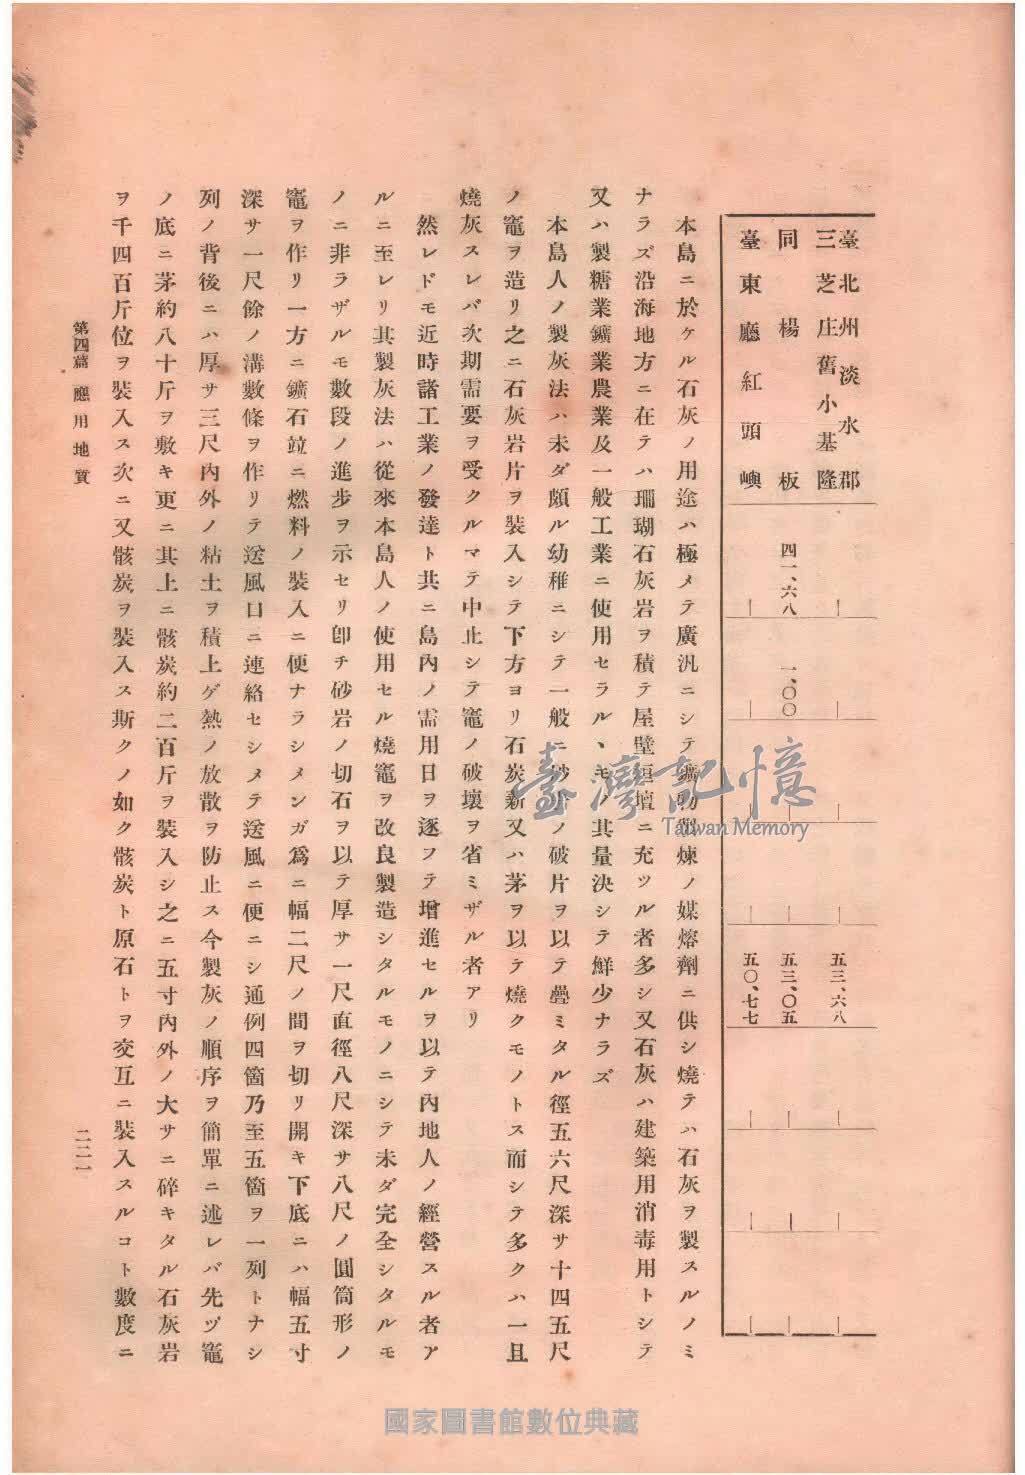 臺北州淡水郡
三芝庄舊小基隆 ― ― ― ― 五三、六八 ― ― ―
同 楊板 四一、六八 一、〇〇 ― ― 五三、〇五 ― ― ―
臺東廳紅頭嶼 ― ― ― ― 五〇、七七 ― ― ―
本島ニ於ケル石灰ノ用途ハ極メテ廣汎ニシテ鑛物製煉ノ媒熔劑ニ供シ燒テハ石灰ヲ製スルノミ
ナラズ沿海地方ニ在テハ珊瑚石灰岩ヲ積テ屋壁垣壇ニ充ツル者多シ又石灰ハ建築用消毒用トシテ
又ハ製糖業鑛業農業及一般工業ニ使用セラルヽモノ其量決シテ鮮少ナラズ
本島人ノ製灰法ハ未ダ頗ル幼稚ニシテ一般ニ砂岩ノ破片ヲ以テ疊ミタル徑五六尺深サ十四五尺
ノ竈ヲ造リ之ニ石灰岩片ヲ裝入シテ下方ヨリ石炭薪又ハ茅ヲ以テ燒クモノトス而シテ多クハ一且
燒灰スレバ次期需要ヲ受クルマテ中止シテ竈ノ破壞ヲ省ミザル者アリ
然レドモ近時諸工業ノ發達ト共ニ島內ノ需用日ヲ逐フテ增進セルヲ以テ內地人ノ經營スル者ア
ルニ至レリ其製灰法ハ從來本島人ノ使用セル燒竈ヲ改良製造シタルモノニシテ未ダ完全シタルモ
ノニ非ラザルモ數段ノ進步ヲ示セリ卽チ砂岩ノ切石ヲ以テ厚サ一尺直徑八尺深サ八尺ノ圓筒形ノ
竈ヲ作リ一方ニ鑛石竝ニ燃料ノ裝入ニ便ナラシメンガ爲ニ幅二尺ノ間ヲ切リ開キ下底ニハ幅五寸
深サ一尺餘ノ溝數條ヲ作リテ送風口ニ連絡セシメテ送風ニ便ニシ通例四箇乃至五箇ヲ一列トナシ
列ノ背後ニハ厚サ三尺內外ノ粘土ヲ積上ゲ熱ノ放散ヲ防止ス今製灰ノ順序ヲ簡單ニ述レバ先ヅ竈
ノ底ニ茅約八十斤ヲ敷キ更ニ其上ニ骸炭約二百斤ヲ裝入シ之ニ五寸內外ノ大サニ碎キタル石灰岩
ヲ千四百斤位ヲ裝入ス次ニ又骸炭ヲ裝入ス斯クノ如ク骸炭ト原石トヲ交互ニ裝入スルコト數度ニ
第四篇 應用地質
二二一
臺灣記憶
Taiwan Memory
國家圖書館數位典藏